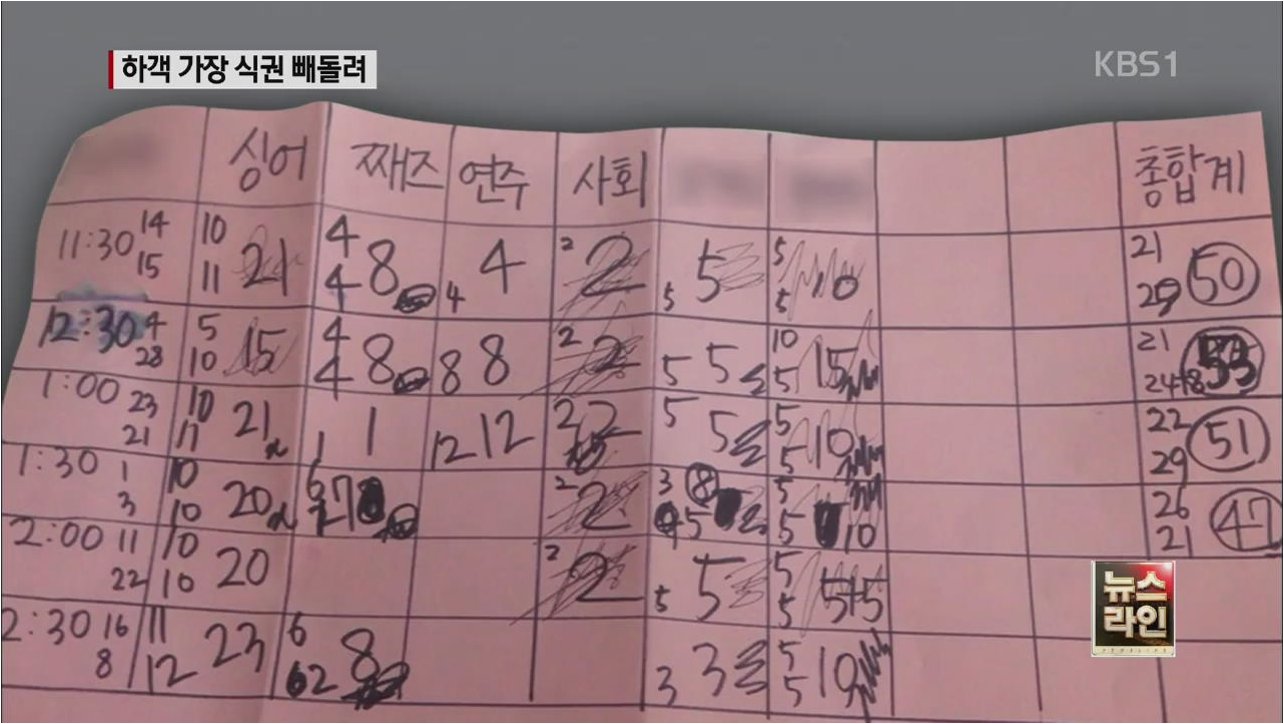 하객 가장 식권 빼돌려
KBS1
싱어 째즈 연주 사회 총합계
11:30 14 15 10 11 21 4 4 8 4 4 2 2 5 5 5 5 10 21 50
12:30 4 28 5 10 15 4 4 8 8 8 2 2 5 5 10 5 15 21 24+8
1:00 23 21 10 11 21 1 1 12 12 2 5 5 5 5 10 22 29 51
1:30 1 3 10 10 20 2 2 3 8 5 5 5 10 26 21 47
2:00 11 22 10 10 20 2 2 5 5 5 5 5+5
2:30 16 8 11 12 23 6 62 8 3 3 5 5 10
뉴스
라인